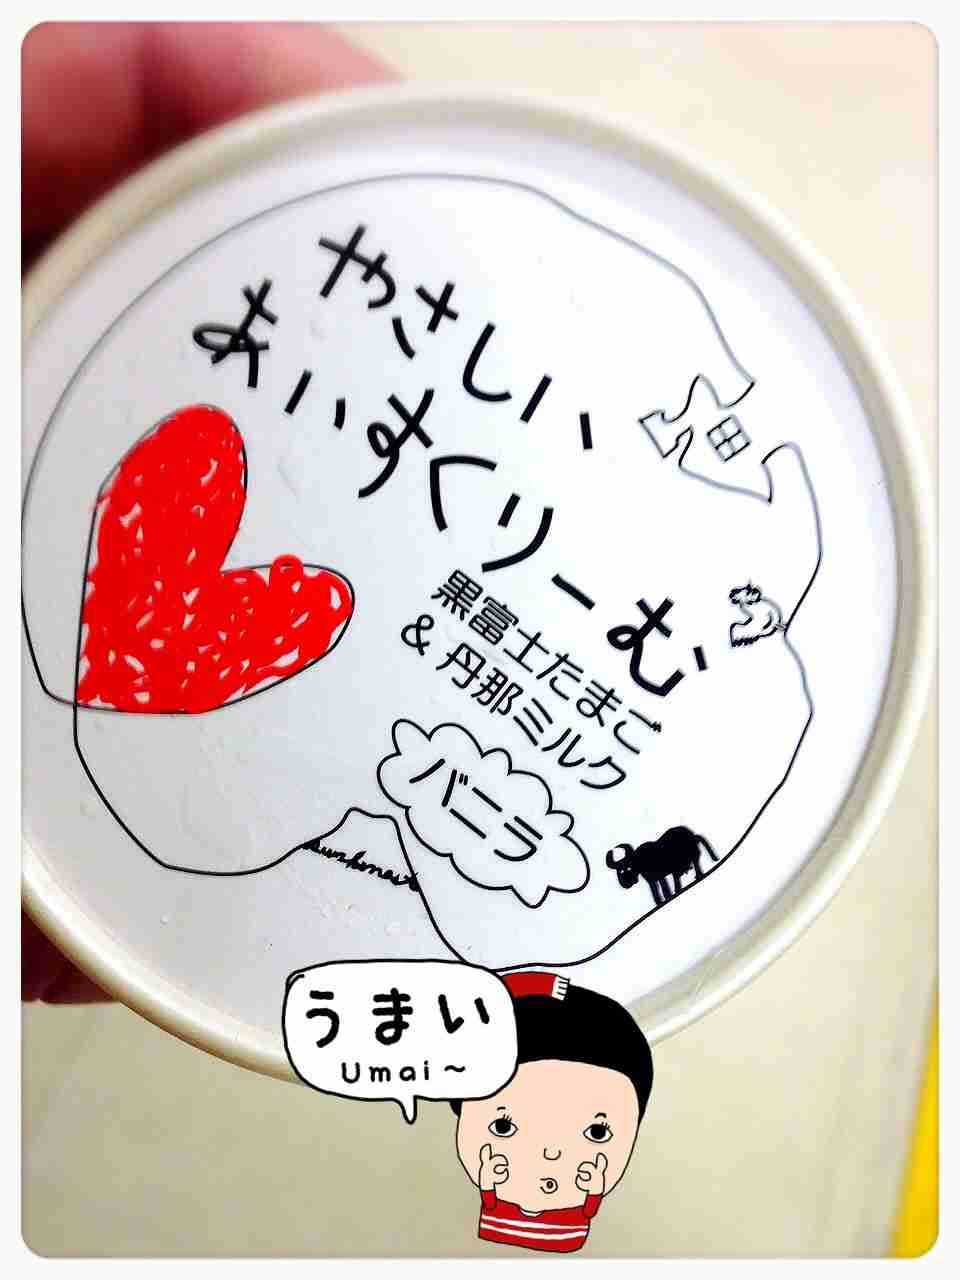 やさしい
あいすくりーむ
黒富士たまご
& 丹那ミルク
バニラ
うまい
Umai~